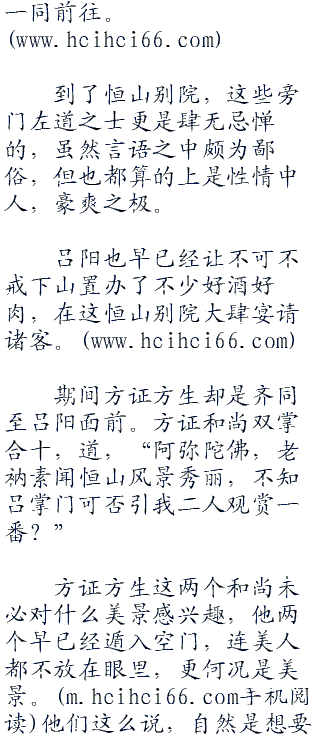 一同前往。
(www.hcihci66.com)
到了恒山别院，这些旁
门左道之士更是肆无忌惮
的，虽然言语之中颇为鄙
俗，但也都算的上是性情中
人，豪爽之极。
吕阳也早已经让不可不
戒下山置办了不少好酒好
肉，在这恒山别院大肆宴请
诸客。(www.hcihci66.com)
期间方证方生却是齐同
至吕阳面前。方证和尚双掌
合十，道，“阿弥陀佛，老
衲素闻恒山风景秀丽，不知
吕掌门可否引我二人观赏一
番？”
方证方生这两个和尚未
必对什么美景感兴趣，他两
个早已经遁入空门，连美人
都不放在眼里，更何况是美
景。(m.hcihci66.com手机阅
读)他们这么说，自然是想要